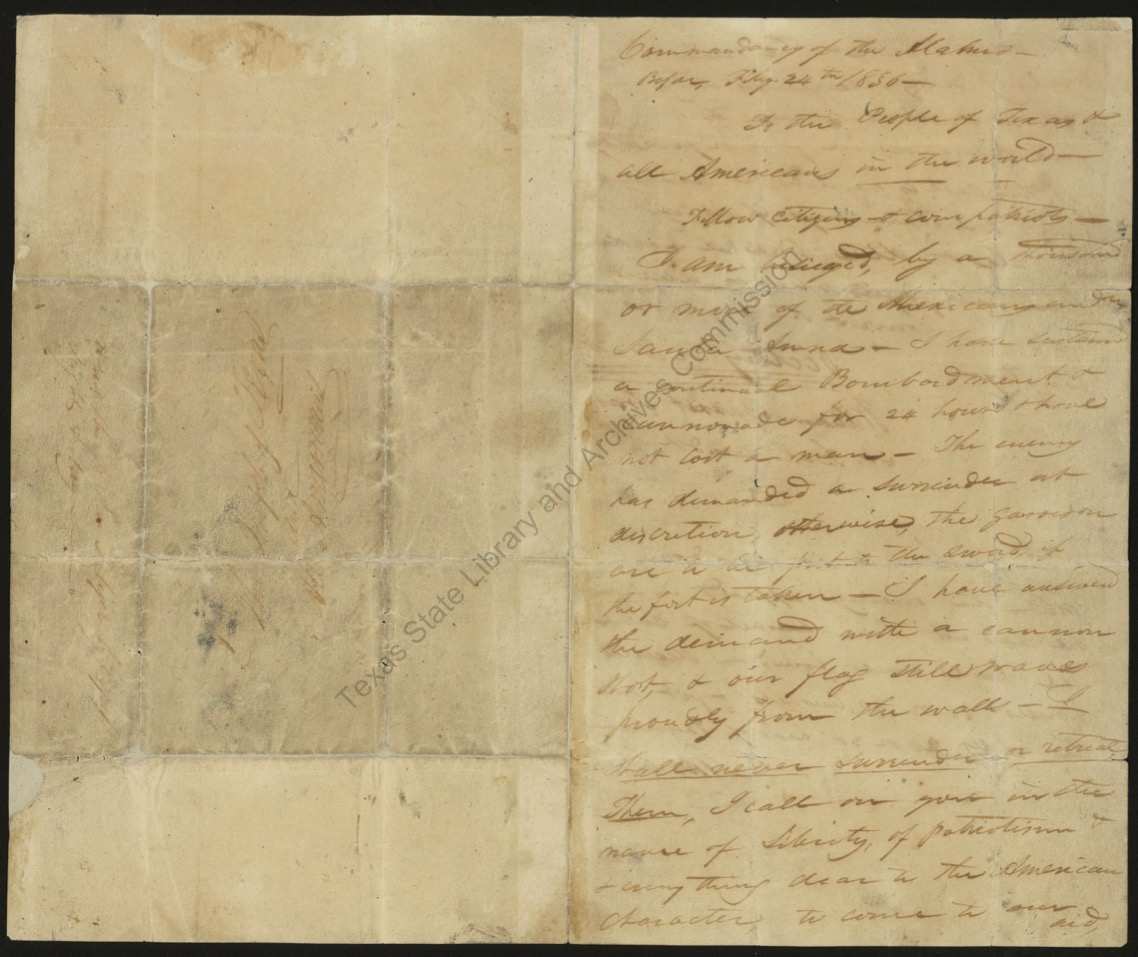 Commandancy of the Alamo—
Bejar, Feby. 24th 1836—
To the People of Texas &
all Americans in the world—
Fellow citizens & compatriots—
I am besieged, by a thousand
or more of the Mexicans under
Santa Anna — I have sustained
a continual Bombardment &
cannonade for 24 hours & have
not lost a man — The enemy
has demanded a surrender at
discretion, otherwise, the garrison
are to be put to the sword, if
the fort is taken — I have answered
the demand with a cannon
shot, & our flag still waves
proudly from the walls — I
shall never surrender or retreat
Then, I call on you in the
name of Liberty, of patriotism &
& everything dear to the American
character, to come to our
aid,
Texas State Library and Archives Commission